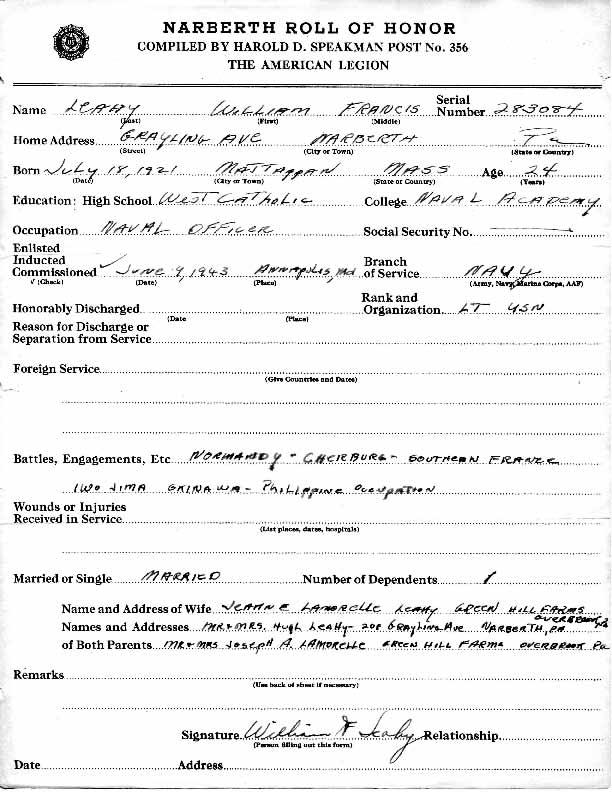 NARBERTH ROLL OF HONOR
COMPILED BY HAROLD D. SPEAKMAN POST No. 356
THE AMERICAN LEGION
Name LEAHY WILLIAM FRANCIS Serial Number 283084
(Last) (First) (Middle)
Home Address GRAYLING AVE NARBERTH Pa
(Street) (City or Town) (State or Country)
Born July 18, 1921 MATTAPPAN MASS Age 24
(Date) (City or Town) (State or Country) (Years)
Education: High School West Catholic College NAVAL ACADEMY
Occupation NAVAL OFFICER Social Security No.
Enlisted
Inducted Branch
Commissioned ✓ June 9, 1943 Annapolis, Md of Service NAVY
√ (Check) (Date) (Place) (Army, Navy, Marine Corps, AAF)
Rank and
Honorably Discharged Organization LT USN
(Date (Place)
Reason for Discharge or
Separation from Service
Foreign Service
(Give Countries and Dates)
Battles, Engagements, Etc NORMANDY - CHEIRBURG - SOUTHERN FRANCE
IWO JIMA OKINAWA - PHILIPPINE OCCUPATION
Wounds or Injuries
Received in Service
(List places, dates, hospitals)
Married or Single MARRIED Number of Dependents 1
Name and Address of Wife JEANNE LAMORELLE LEAHY GREEN HILL FARMS
OVERBROOK, Pa
Names and Addresses MR & MRS. HUGH LEAHY - 208 GRAYLING AVE NARBERTH, PA
of Both Parents MR & MRS JOSEPH A. LAMORELLE GREEN HILL FARMS OVERBROOK Pa
Remarks
(Use back of sheet if necessary)
Signature William F Leahy Relationship
(Person filling out this form)
Date Address